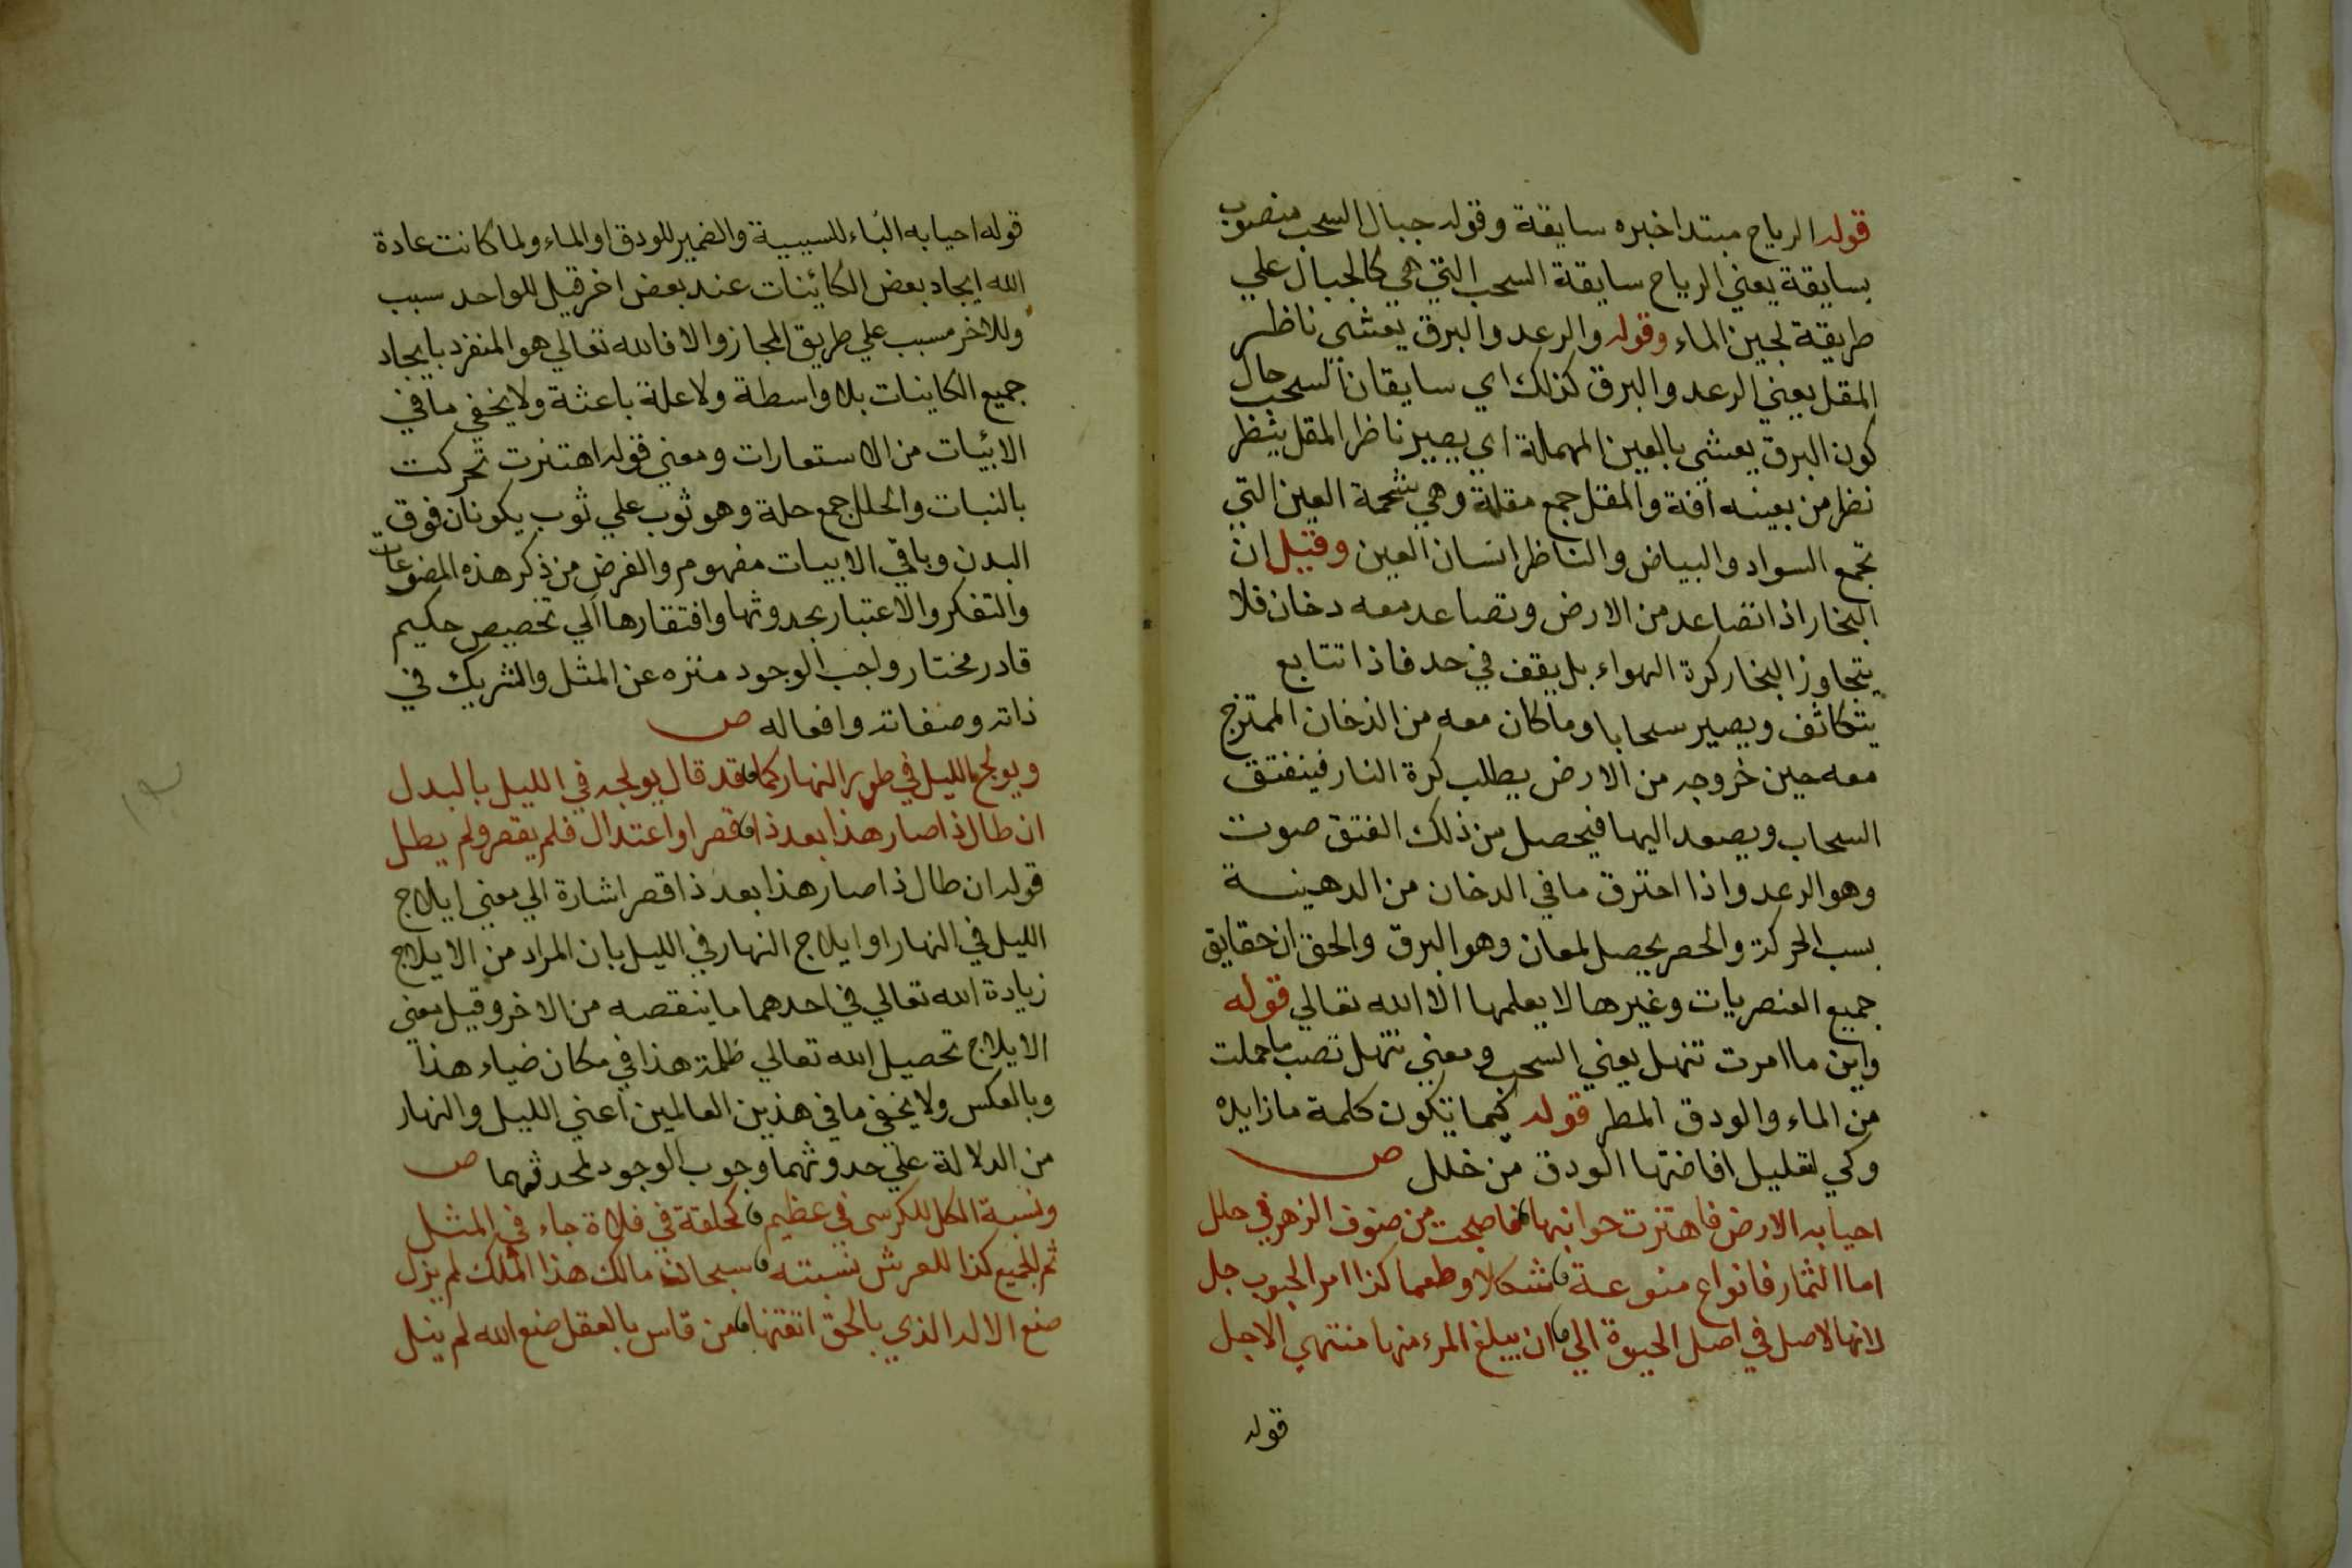 قوله الرياح مبتدا خبره سايقة وقوله جبال السحب منصوب
بسايقة يعني الرياح سايقة السحب التي هي كالجبال علي
طريقة لجين الماء وقوله والرعد والبرق يعشى ناظر
المقل يعني الرعد والبرق كذلك اي سايقان السحب حال
كون البرق يعشى بالعين المهملة اي يصير ناظر المقل ينظر
نظر من بعينه آفة والمقل جمع مقلة وهي شحمة العين التي
تجمع السواد والبياض والناظر انسان العين وقيل ان
البخار اذا تصاعد من الارض وتصاعد معه دخان فلا
يتجاوز البخار كرة الهواء بل يقف في حد فاذا تتابع
يتكاثف ويصير سحابا وما كان معه من الدخان الممتزج
معه حين خروجه من الارض يطلب كرة النار فينفتق
السحاب ويصعد اليها فيحصل من ذلك الفتق صوت
وهو الرعد واذا احترق ما في الدخان من الدهينة
بسب الحركة والحصر يحصل لمعان وهو البرق والحق ان حقايق
جميع العنصريات وغيرها لا يعلمها الا الله تعالي قوله
واين ما امرت تنهل يعني السحب ومعني تنهل تصب ما حملت
من الماء والودق المطر قوله كيما تكون كلمة ما زايده
وكي لتعليل افاضتها الودق من خلل ص
احيا به الارض فاهتزت جوانبها فاصبحت من صنوف الزهر في حلل
اما الثمار فانواع منوعة شكلا وطعما كذا امر الحبوب جل
لانها الاصل في اصل الحيوة الي ان يبلغ المرء منها منتهي الاجل
قوله
قوله احيا به الباء للسببية والضمير للودق او الماء ولما كانت عادة
الله ايجاد بعض الكائنات عند بعض اخر قيل للواحد سبب
وللاخر مسبب علي طريق المجاز والا فالله تعالي هو المنفرد بايجاد
جميع الكاينات بلا واسطة ولا علة باعثة ولا يخفي ما في
الابيات من الاستعارات ومعني قوله اهتزت تحركت
بالنبات والحلل جمع حلة وهو ثوب علي ثوب يكونان فوق
البدن وباقي الابيات مفهوم والغرض من ذكر هذه المصنوعات
والتفكر والاعتبار بحدوثها وافتقارها الي تخصيص حكيم
قادر مختار واجب الوجود منزه عن المثل والشريك في
ذاته وصفاته وافعاله ص
ويولج الليل في طور النهار كما قد قال يولجه في الليل بالبدل
ان طال ذا صار هذا بعد ذا قصر او اعتدال فلم يقصر ولم يطل
قوله ان طال ذا صار هذا بعد ذا قصر اشارة الي معني ايلاج
الليل في النهار او ايلاج النهار في الليل بان المراد من الايلاج
زيادة الله تعالي في احدهما ما ينقصه من الاخر وقيل معني
الايلاج تحصيل الله تعالي ظلمة هذا في مكان ضياء هذا
وبالعكس ولا يخفي ما في هذين العالمين اعني الليل والنهار
من الدلالة علي حدوثهما وجوب الوجود لمحدثهما ص
ونسبة الكل للكرسي في عظيم كحلقة في فلاة جاء في المثل
ثم الجميع كذا للعرش نسبته سبحان مالك هذا الملك لم يزل
صنع الاله الذي بالحق اتقنها من قاس بالعقل صنع الله لم ينل